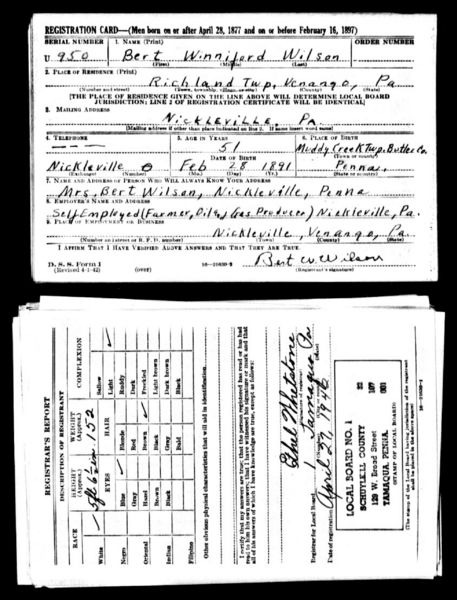 REGISTRATION CARD—(Men born on or after April 28, 1877 and on or before February 16, 1897)
SERIAL NUMBER 1. NAME (Print) ORDER NUMBER
U 950 Bert Winniford Wilson
(First) (Middle) (Last)
2. PLACE OF RESIDENCE (Print)
Richland Twp, Venango, Pa
(Number and street) (Town, township, village, or city) (County) (State)
[THE PLACE OF RESIDENCE GIVEN ON THE LINE ABOVE WILL DETERMINE LOCAL BOARD
JURISDICTION; LINE 2 OF REGISTRATION CERTIFICATE WILL BE IDENTICAL]
3. MAILING ADDRESS
Nickleville, Pa
[Mailing address if other than place indicated on line 2. If same insert word same]
4. TELEPHONE 5. AGE IN YEARS 6. PLACE OF BIRTH
51 Muddy Creek Twp. Butler Co.
DATE OF BIRTH (Town or county)
Nickleville Feb 28 1891 Penna.
(Exchange) (Number) (Mo.) (Day) (Yr.) (State or country)
7. NAME AND ADDRESS OF PERSON WHO WILL ALWAYS KNOW YOUR ADDRESS
Mrs. Bert Wilson, Nickleville, Penna
8. EMPLOYER'S NAME AND ADDRESS
Self Employed (Farmer, Oil & Gas Producer) Nickleville, Pa.
9. PLACE OF EMPLOYMENT OR BUSINESS
Nickleville, Venango, Pa.
(Number and street or R. F. D. number) (Town) (County) (State)
I AFFIRM THAT I HAVE VERIFIED ABOVE ANSWERS AND THAT THEY ARE TRUE.
D. S. S. Form 1 Bert W Wilson
(Revised 4-1-42) (over) (Registrant's signature)
REGISTRAR'S REPORT
DESCRIPTION OF REGISTRANT
RACE HEIGHT (Approx.) WEIGHT (Approx.) COMPLEXION
5ft 6½ in 152
EYES HAIR
White Blue Blonde Sallow
Light
Negro Gray Red Ruddy
Dark
Oriental Hazel Brown Freckled
Light brown
Indian Brown Black Dark brown
Filipino Black Gray Black
Bald
Other obvious physical characteristics that will aid in identification
I certify that my answers are true; that the person registered has read or has had
read to him his own answers; that I have witnessed his signature or mark and that
all of his answers of which I have knowledge are true, except as follows:
Ethel Whetstone
Registrar for Local Board Tamaqua Pa
Date of registration April 27, 1942
LOCAL BOARD NO. 1 22
SCHUYLKILL COUNTY 107
129 W. Broad Street 001
TAMAQUA, PENNA.
(STAMP OF LOCAL BOARD)
(The stamp of the Local Board having jurisdiction of the registrant
shall be placed in the above space)